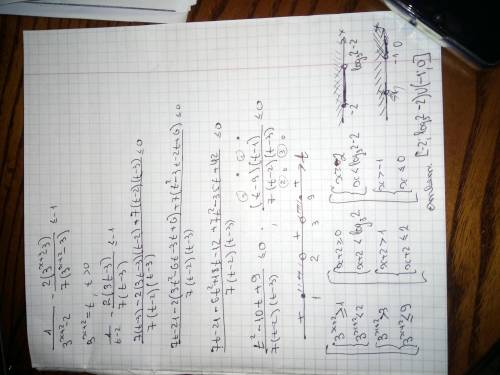 1/(3^(x+2)-2) - 2(3^(x+3)-3)/7(3^(x+2)-3) ≤ -1
3^(x+2) = t, t>0
1/(t-2) - 2(3t-3)/7(t-3) ≤ -1
(7(t-3)-2(3t-3)(t-2)+7(t-2)(t-3))/7(t-2)(t-3) ≤ 0
(7t-21-2(3t²-6t-3t+6)+7(t²-3t-2t+6))/7(t-2)(t-3) ≤ 0
(7t-21-6t²+18t-12+7t²-35t+42)/7(t-2)(t-3) ≤ 0
(t²-10t+9)/7(t-2)(t-3) ≤ 0 ; (t-9)(t-1)/7(t-2)(t-3) ≤ 0
+ - + - + t
1 2 3 9
[ { 3^(x+2) ≥ 1 [ { x+2 ≥ 0 [ { x ≥ -2
{ 3^(x+2) < 2 { x+2 < log₃2 { x < log₃2-2
{ 3^(x+2) > 3 { x+2 > 1 { x > -1
{ 3^(x+2) ≤ 9 { x+2 ≤ 2 { x ≤ 0
-2 log₃2-2 x
-1 0 x
[-2; log₃2-2)∪(-1; 0]